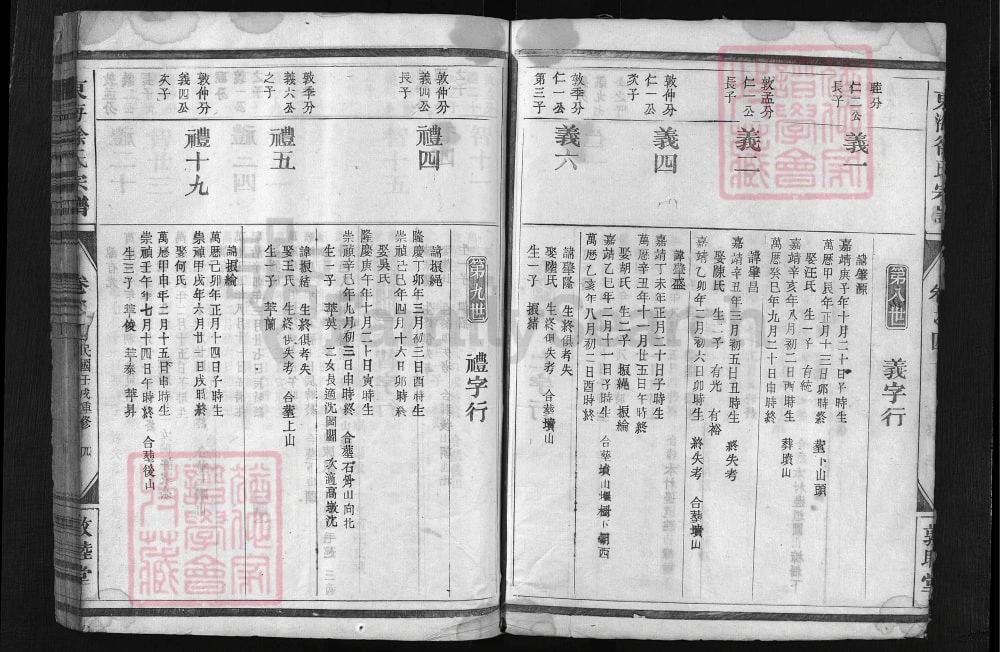 第八世
義字行
睦分
仁二公
長子
義一
諱肇源
嘉靖庚子年十月二十日子時生
萬曆甲辰年正月十三日卯時終
娶汪氏 生一子 有統
嘉靖辛亥年八月初二日酉時生
萬曆癸巳年九月二十日申時終 葬墳山
敦孟分
仁一公
長子
義二
諱肇昌
嘉靖辛丑年三月初五日丑時生 終失考
娶陳氏 生二子 有光 有裕
嘉靖乙卯年二月初六日卯時生 終失考 合塟墳山
敦仲分
仁一公
次子
義四
諱肇盛
嘉靖丁未年正月二十日子時生
萬曆辛丑年十月廿五日午時終
娶胡氏 生二子 振繩 振綸
嘉靖乙巳年二月十一日子時生
萬曆乙亥年八月初二日酉時終
敦季分
仁一公
第三子
義六
諱肇隆 生終俱者失
娶陸氏 生終俱失考 合塟墳山
生一子 振緒
第九世
禮字行
敦仲分
義四公
長子
禮四
諱振繩
隆慶丁卯年三月初三日酉時生
崇禎己巳年四月十六日卯時終
娶吳氏
隆慶庚午年十月二十日寅時生
崇禎辛巳年九月初三日申時終
生一子 萃英
敦季分
義六公
之子
禮五
諱振緒 生終俱考失
娶王氏 生終俱失考 合塟上山
生一子 萃蘭
敦仲分
義四公
次子
禮十九
諱振綸
萬曆己卯年正月十四日子時生
崇禎甲戌年六月廿一日戌時終
娶何氏
萬曆甲申年二月十五日申時生
崇禎壬午年七月十四日午時終 合塟後山
生三子 萃俊 萃泰 萃昇
東海徐氏宗譜
民國壬戌重修
四
敦睦堂